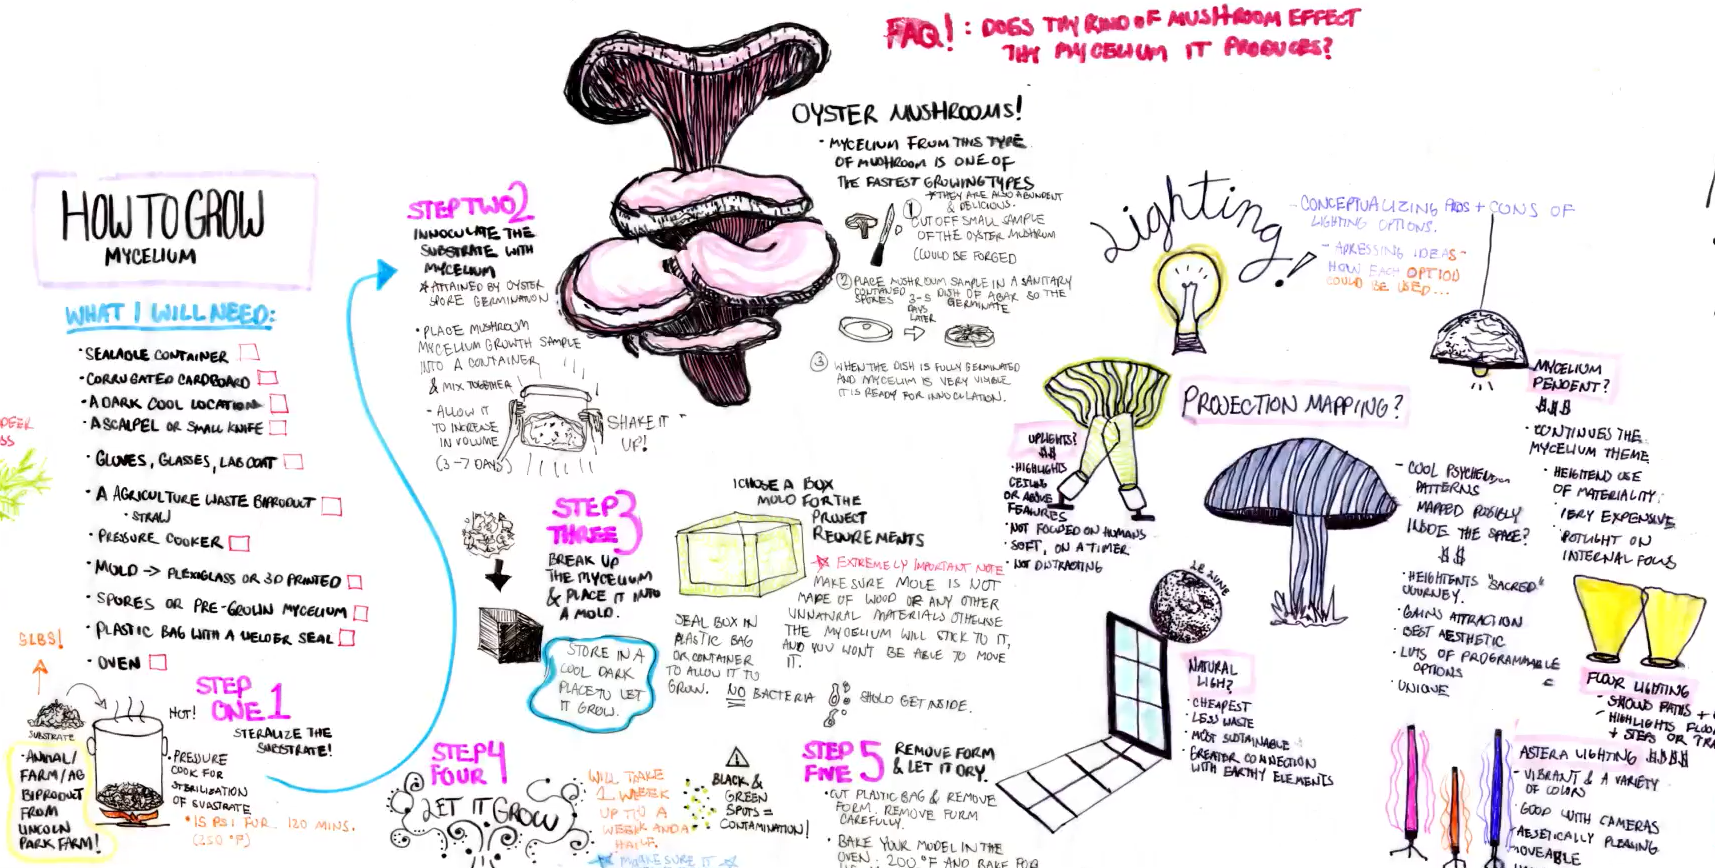 FAQ!: DOES THY KIND OF MUSHROOM EFFECT
THY MYCELIUM IT PRODUCES?
HOW TO GROW
MYCELIUM
WHAT I WILL NEED:
· SEALABLE CONTAINER
· CORRUGATED CARDBOARD
· A DARK COOL LOCATION
· A SCALPEL OR SMALL KNIFE
· GLOVES, GLASSES, LAB COAT
· A AGRICULTURE WASTE BIPRODUCT
· STRAW
· PRESSURE COOKER
· MOLD -> PLEXIGLASS OR 3D PRINTED
· SPORES OR PRE-GROWN MYCELIUM
· PLASTIC BAG WITH A WELDER SEAL
· OVEN
5LBS!
SUBSTRATE
HOT!
STEP
ONE 1
STERALIZE THE
SUBSTRATE!
· ANIMAL/
FARM/AG
BIPRODUCT
FROM
LINCOLN
PARK FARM!
· PRESSURE
COOK FOR
STERILISATION
OF SUBSTRATE
* 15 PSI FUR. 120 MINS.
(250 °F)
STEP TWO 2
INNOCULATE THE
SUBSTRATE WITH
MYCELIUM
* ATTAINED BY OYSTER
SPORE GERMINATION
· PLACE MUSHROOM
MYCELIUM GROWTH SAMPLE
INTO A CONTAINER
& MIX TOGETHER
- ALLOW IT
TO INCREASE
IN VOLUME
(3-7 DAYS)
SHAKE IT
UP!
OYSTER MUSHROOMS!
· MYCELIUM FROM THIS TYPE
OF MUSHROOM IS ONE OF
THE FASTEST GROWING TYPES
* THEY ARE ALSO ABUNDENT
& DELICIOUS.
① CUT OFF SMALL SAMPLE
OF THE OYSTER MUSHRUM
(COULD BE FORGED
② PLACE MUSHROOM SAMPLE IN A SANITARY
CONTAINED DISH OF AGAR SO THE
SPORES GERMINATE
3-5
DAYS
LATER
③ WHEN THE DISH IS FULLY GERMINATED
AND MYCELIM IS VERY VISIBLE
IT IS READY FOR INNOCULATION.
STEP 3
THREE
BREAK UP
THE MYCELIUM
& PLACE IT INTO
A MOLD.
STORE IN A
COOL DARK
PLACE TO LET
IT GROW.
I CHOSE A BOX
MOLD FOR THE
PROJECT
REQUIREMENTS
* EXTREMELY IMPORTANT NOTE
MAKE SURE MOLE IS NOT
MADE OF WOOD OR ANY OTHER
UNNATURAL MATERIALS OTHEWISE
THE MYCELIUM WILL STICK TO IT,
AND YOU WON'T BE ABLE TO MOVE
IT.
SEAL BOX IN
PLASTIC BAG
OR CONTAINER
TO ALLOW IT TO
GROW.
NO BACTERIA
SHOLD GET INSIDE.
STEP 4
FOUR
LET IT GROW
WILL TAKE
1 WEEK
UP TO A
WEEK AND A
HALF.
* MAKE SURE IT
BLACK &
GREEN
SPOTS =
CONTAMINATION!
STEP 5
FIVE
REMOVE FORM
& LET IT DRY.
· CUT PLASTIC BAG & REMOVE
FORM. REMOVE FORM
CAREFULLY.
· BAKE YOUR MODEL IN THE
OVEN. 200 °F AND BAKE FOR
Lighting!
- CONCEPTUALIZING PROS + CONS OF
LIGHTING OPTIONS.
- ADRESSING IDEAS-
HOW EACH OPTION
COULD BE USED...
MYCELIUM
PENDENT?
$$$
· CONTINUES THE
MYCELIUM THEME
· HEIGHTEND USE
OF MATERIALITY.
· VERY EXPENSIVE
· SPOTLIGHT ON
INTERNAL FOCUS
PROJECTION MAPPING?
- COOL PSYCHEDELIC
PATTERNS
MAPPED POSSIBLY
INSIDE THE SPACE?
$$
· HEIGHTENTS "SACRED"
JOURNEY.
· GAINS ATTRACTION
· BEST AESTHETIC
· LOTS OF PROGRAMMABLE
OPTIONS
· UNIQUE
UPLIGHTS?
$$
· HIGHLIGHTS
CEILING
OR ABOVE
FEATURES
· NOT FOCUSED ON HUMANS
· SOFT, ON A TIMER
· NOT DISTRACTING
28 JUNE
NATURAL
LIGHT?
· CHEAPEST
· LESS WASTE
· MOST SUSTAINABLE
· GREATOR CONNECTION
WITH EARTHY ELEMENTS
FLOOR LIGHTING
- SHOWS PATHS +
- HIGHLIGHTS FLOO
+ STEPS OR TRA
ASTERA LIGHTING $$$$
- VIBRANT & A VARIETY
OF COLORS
- GOOD WITH CAMERAS
- AESETICALLY PLEASING
MOVEABLE